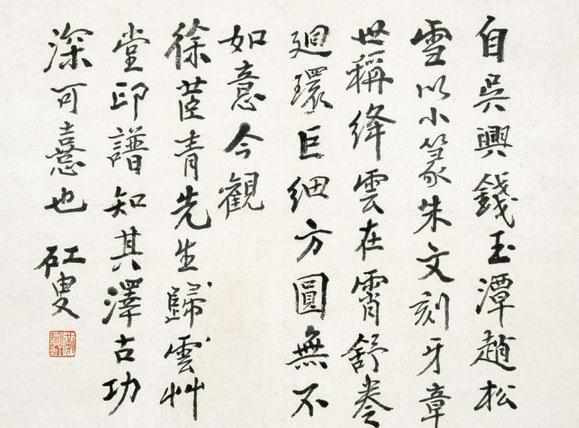 自吳興錢玉潭趙松
雪以小篆朱文刻牙章
世稱絳雲在霄舒卷
廻環巨細方圓無不
如意今觀
徐茝青先生歸雲艸
堂印譜知其澤古功
深可憙也 叟